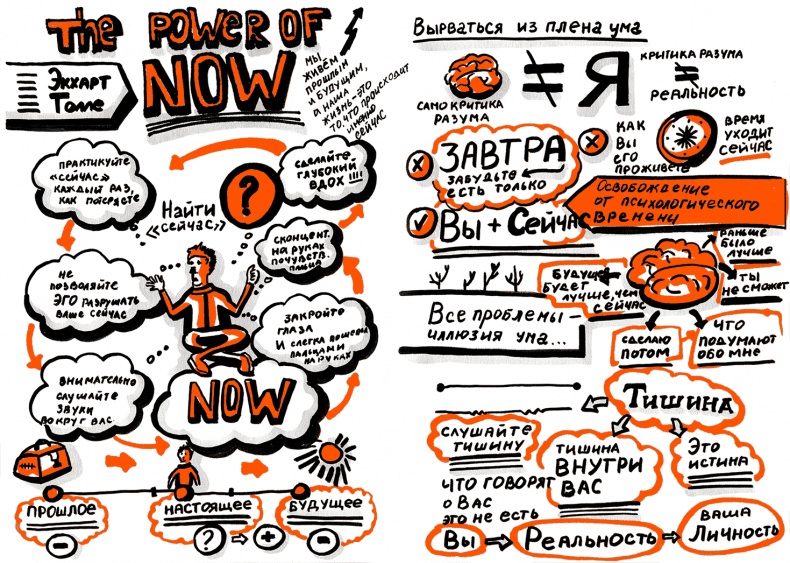 The POWER OF
NOW
ЭКХАРТ
ТОЛЛЕ
МЫ
ЖИВЁМ
ПРОШЛЫМ
И БУДУЩИМ,
А НАША
ЖИЗНЬ - ЭТО
ТО, ЧТО ПРОИСХОДИТ
ИМЕННО
СЕЙЧАС
ПРАКТИКУЙТЕ
«СЕЙЧАС»
КАЖДЫЙ РАЗ,
КАК
СДЕЛАЙТЕ
ГЛУБОКИЙ
ВДОХ !!!!
?
Найти
«СЕЙЧАС»
СКОНЦЕНТ.
НА РУКАХ
ПОЧУВСТВ.
НЕ
ПОЗВОЛЯЙТЕ
ЭГО РАЗРУШАТЬ
ВАШЕ СЕЙЧАС
ЗАКРОЙТЕ
ГЛАЗА
И СЛЕГКА ПОШЕВЕЛИ
ПАЛЬЦАМИ
НА РУКАХ
ВНИМАТЕЛЬНО
СЛУШАЙТЕ
ЗВУКИ
ВОКРУГ ВАС
NOW
ПРОШЛОЕ
НАСТОЯЩЕЕ
БУДУЩЕЕ
-
? +
-
Вырваться из плена ума
САМОКРИТИКА
РАЗУМА
≠ Я
КРИТИКА РАЗУМА
≠
РЕАЛЬНОСТЬ
ЗАВТРА
ЗАБУДЬТЕ
ЕСТЬ ТОЛЬКО
КАК
ВЫ
ЕГО
ПРОЖИВЁТЕ
ВРЕМЯ
УХОДИТ
СЕЙЧАС
Вы + Сейчас
Освобождение
от психологического
времени
РАНЬШЕ
БЫЛО
ЛУЧШЕ
БУДУЩЕЕ
БУДЕТ
ЛУЧШЕ, ЧЕМ
СЕЙЧАС
ТЫ
НЕ СМОЖЕТ
Все проблемы -
иллюзия ума...
СДЕЛАЮ
ПОТОМ
ЧТО
ПОДУМАЮТ
ОБО МНЕ
Тишина
СЛУШАЙТЕ
ТИШИНУ
ТИШИНА
ВНУТРИ
ВАС
Это
истина
ЧТО ГОВОРЯТ
О ВАС
ЭТО НЕ ЕСТЬ
Вы
Реальность
ВАША
Личность